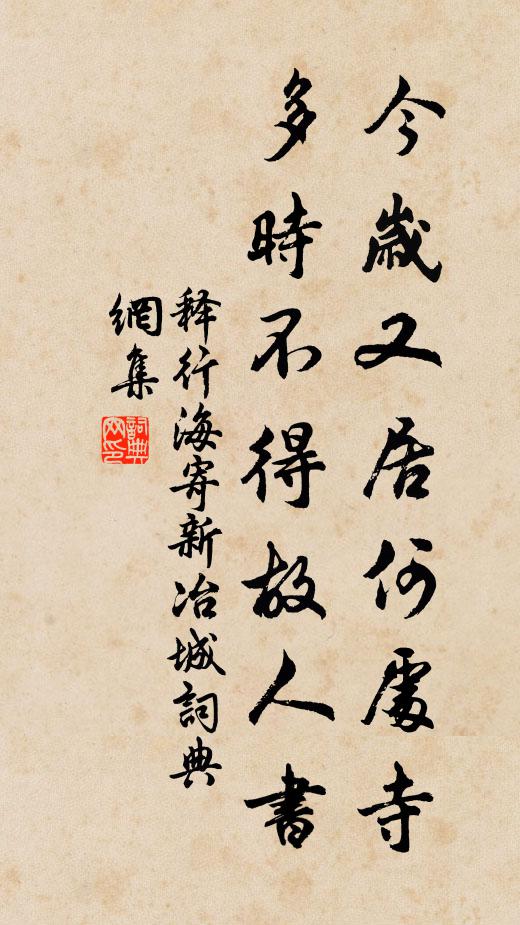 今歲又居何處寺
多時不得故人書
释行海寄新冶城詞典
網集
詞典
网印